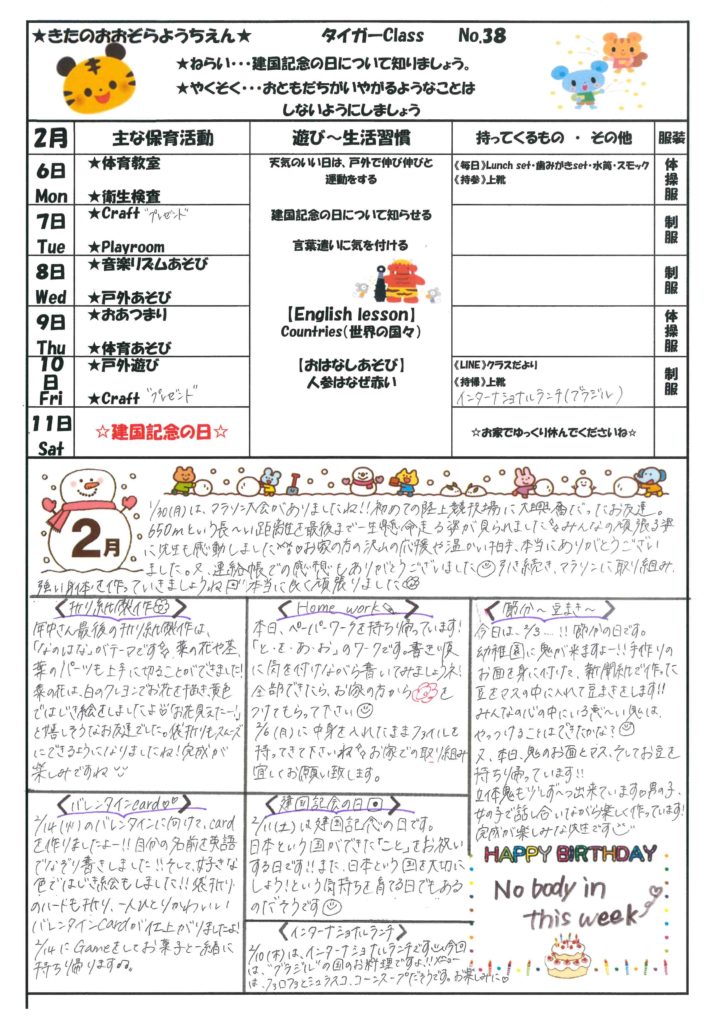 ★きたのおおぞらようちえん★ タイガーClass No.38
★ねらい・・・建国記念の日について知りましょう。
★やくそく・・・おともだちがいやがるようなことは
しないようにしましょう
2月 主な保育活動 遊び～生活習慣 持ってくるもの ・ その他 服装
6日 Mon
★体育教室
★衛生検査
天気のいい日は、戸外で伸び伸びと
運動をする
《毎日》Lunch set・歯みがきset・水筒・スモック
《持参》上靴
体操服
7日 Tue
★Craft “プレゼント”
★Playroom
建国記念の日について知らせる
言葉遣いに気を付ける
制服
8日 Wed
★音楽リズムあそび
★戸外あそび
制服
9日 Thu
★おあつまり
★体育あそび
【English lesson】
Countries(世界の国々)
体操服
10日 Fri
★戸外遊び
★Craft “プレゼント”
【おはなしあそび】
人参はなぜ赤い
《LINE》クラスだより
《持帰》上靴
インターナショナルランチ(ブラジル)
制服
11日 Sat
☆建国記念の日☆
☆お家でゆっくり休んでくださいね☆
2月
1/30(月)は、マラソン大会がありましたね!!初めての陸上競技場に大興奮だったお友達。
650mという長～い距離を最後まで一生懸命走る姿が見られました みんなの頑張る姿
に先生も感動しました お家の方の沢山の応援や温かい拍手、本当にありがとうござい
ました。又、連絡帳での感想もありがとうございました 引き続き、マラソンに取り組み、
強い身体を作っていきましょうね 本当に良く頑張りました
〈折り紙製作〉
年中さん最後の折り紙製作は、
「なのはな」がテーマです 菜の花や茎、
葉のパーツも上手に切ることができました!
菜の花は、白のクレヨンでお花を描き、黄色
ではじき絵をしましたよ 「お花見えたー!」
と嬉しそうなお友達でした。後折りもスムーズ
にできるようになりましたね!完成が
楽しみですね
〈Home work〉
本日、ペーパーワークを持ち帰っています!
「と・そ・あ・お」のワークです。書き順
に気を付けながら書いてみましょうネ!
全部できたら、お家の方から を
つけてもらって下さい
2/6(月)に中身を入れたままファイルを
持ってきて下さいね お家での取り組み
宜しくお願い致します。
〈節分～豆まき～〉
今日は…2/3……!!節分の日です。
幼稚園に鬼が来ますよー!!手作りの
お面を身に付けて、新聞紙で作った
豆をマスの中に入れて豆まきをします!!
みんなの心の中にいる悪～い鬼は、
やっつけることはできたかな?
又、本日、鬼のお面とマス、そしてお豆を
持ち帰っています!!
立体鬼も少しずつ出来ています 男の子、
女の子で話し合いながら楽しく作っています!
完成が楽しみな先生です
〈バレンタインcard〉
2/14(火)のバレンタインに向けて、card
を作りましたよー!!自分の名前を英語
でなぞり書きしました!!そして、好きな
色ではじき絵もしました!!後折り
のハートも折り、一人ひとりかわいい
バレンタインcardが仕上がりましたよ!
2/14にGameをしてお菓子と一緒に
持ち帰りますね。
〈建国記念の日〉
2/11(土)は建国記念の日です。
日本という国ができた「こと」をお祝い
する日です!!また、日本という国を大切に
しよう!という気持ちを育てる日でもある
のだそうです
〈インターナショナルランチ〉
2/10(木)は、インターナショナルランチです 今回
は、“ブラジル”の国のお料理ですよ!!メニュー
は、フェロフェとシュラスコ、コーンスープだそうです。お楽しみに
HAPPY BIRTHDAY
No body in
this week